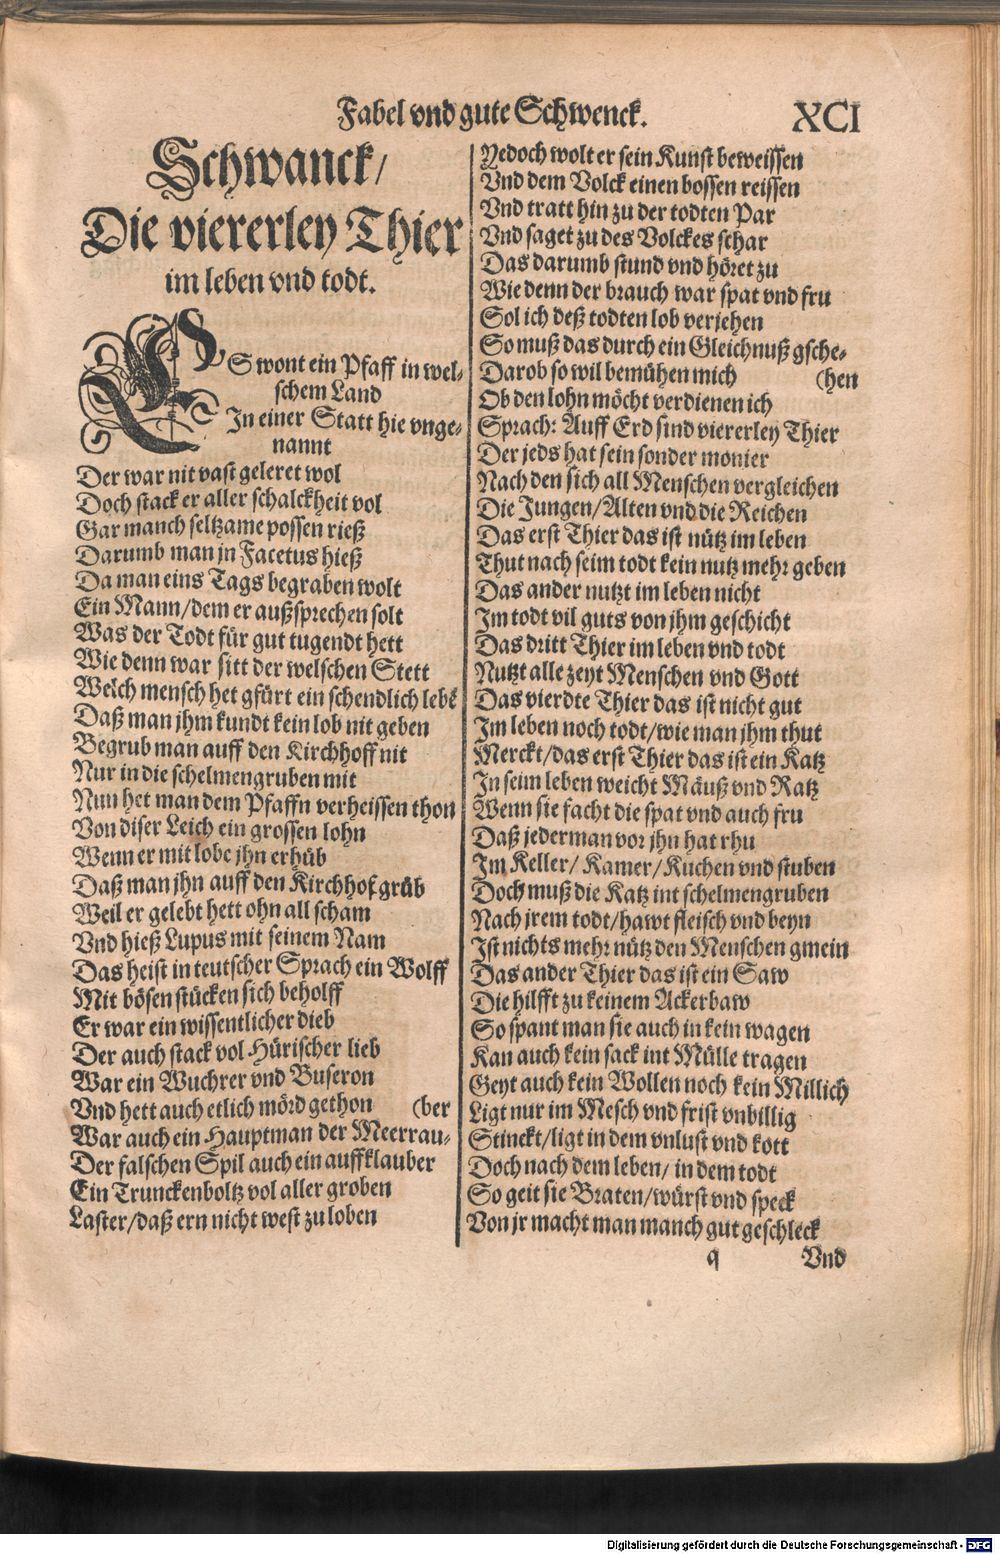 Fabel vnd gute Schwenck. XCI
Schwanck/
Die viererley Thier
im leben vnd todt.
ES wont ein Pfaff in wel-
schem Land
In einer Statt hie vnge-
nannt
Der war nit vast geleret wol
Doch stack er aller schalckheit vol
Gar manch seltzame possen rieß
Darumb man jn Facetus hieß
Da man eins Tags begraben wolt
Ein Mann/dem er außsprechen solt
Was der Todt für gut tugendt hett
Wie denn war sitt der welschen Stett
Welch mensch het gfürt ein schendlich lebē
Daß man jhm kundt kein lob nit geben
Begrub man auff den Kirchhoff nit
Nur in die schelmengruben mit
Nun het man dem Pfaffn verheissen thon
Von diser Leich ein grossen lohn
Wenn er mit lobe jhn erhüb
Daß man jhn auff den Kirchhof grüb
Weil er gelebt hett ohn all scham
Vnd hieß Lupus mit seinem Nam
Das heist in teutscher Sprach ein Wolff
Mit bösen stücken sich beholff
Er war ein wissentlicher dieb
Der auch stack vol Hürischer lieb
War ein Wuchrer vnd Buseron
Vnd hett auch etlich mörd gethon (ber
War auch ein Hauptman der Meerrau-
Der falschen Spil auch ein auffklauber
Ein Trunckenboltz vol aller groben
Laster/daß ern nicht west zu loben
Yedoch wolt er sein Kunst beweissen
Vnd dem Volck einen bossen reissen
Vnd tratt hin zu der todten Par
Vnd saget zu des Volckes schar
Das darumb stund vnd höret zu
Wie denn der brauch war spat vnd fru
Sol ich deß todten lob verjehen
So muß das durch ein Gleichnuß gsche-
Darob so wil bemühen mich (hen
Ob den lohn möcht verdienen ich
Sprach: Auff Erd sind viererley Thier
Der jeds hat sein sonder monier
Nach den sich all Menschen vergleichen
Die Jungen/Alten vnd die Reichen
Das erst Thier das ist nütz im leben
Thut nach seim todt kein nutz mehr geben
Das ander nutzt im leben nicht
Im todt vil guts von jhm geschicht
Das dritt Thier im leben vnd todt
Nutzt alle zeyt Menschen vnd Gott
Das vierdte Thier das ist nicht gut
Im leben noch todt/wie man jhm thut
Merckt/das erst Thier das ist ein Katz
In seim leben weicht Mäuß vnd Ratz
Wenn sie facht die spat vnd auch fru
Daß jederman vor jhn hat rhu
Im Keller/Kamer/Kuchen vnd stuben
Doch muß die Katz int schelmengruben
Nach jrem todt/hawt fleisch vnd beyn
Ist nichts mehr nütz den Menschen gmein
Das ander Thier das ist ein Saw
Die hilfft zu keinem Ackerbaw
So spant man sie auch in kein wagen
Kan auch kein sack int Mülle tragen
Geyt auch kein Wollen noch kein Millich
Ligt nur im Mesch vnd frist vnbillig
Stinckt/ligt in dem vnlust vnd kott
Doch nach dem leben/in dem todt
So geit sie Braten/würst vnd speck
Von jr macht man manch gut geschleck
q Vnd
Digitalisierung gefördert durch die Deutsche Forschungsgemeinschaft - DFG